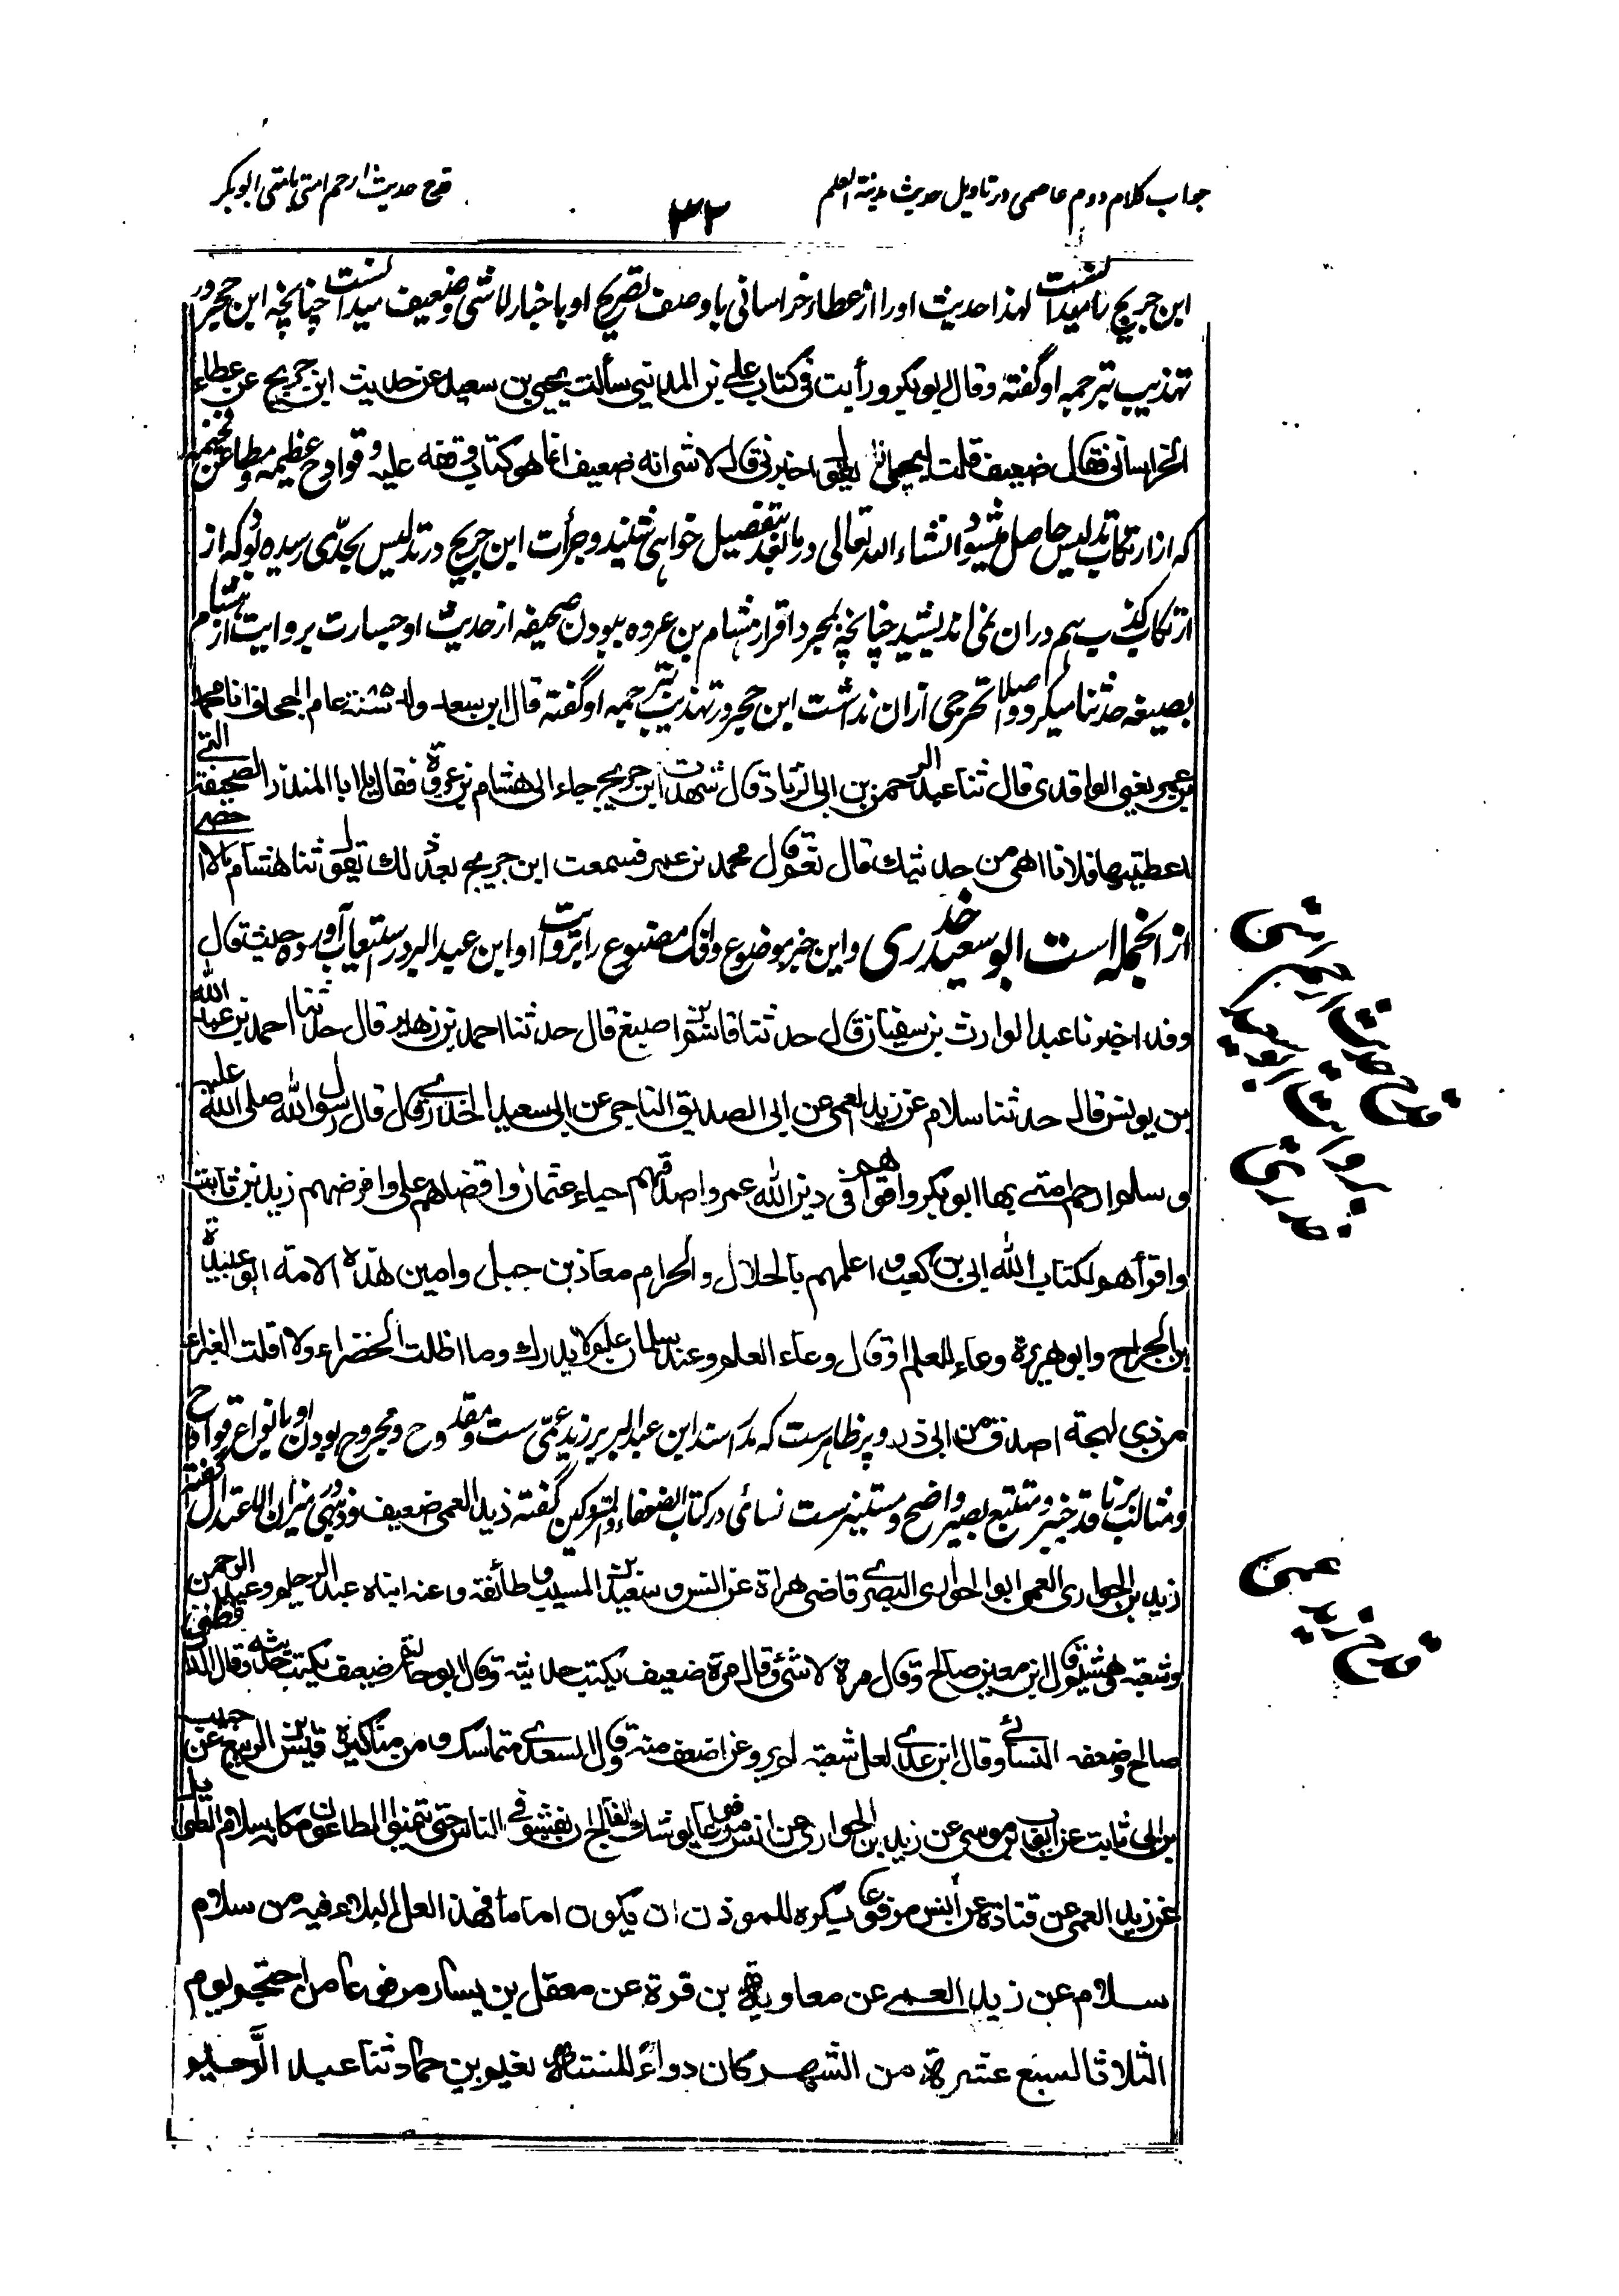 جواب کلام دوم عاصمی در تاویل حدیث مدینة العلم
۳۲
قدح حدیث ارحم امتی بامتی ابوبکر
ابن جریج نامیداست لهذا حدیث او را از عطاء خراسانی با وصف تصریح او باخبار لاشی و ضعیف میدانست چنانچه ابن حجر در
تهذیب بترجمه او گفته وقال ابوبکر ورأیت فی کتاب علی بن المدینی سألت یحیی بن سعید عن حدیث ابن جریج عن عطاء
الخراسانی فقال ضعیف قلت لیحیی انه یقول اخبرنی قال لا شی انه ضعیف انما هو کتاب دفعه علیه و قوادح عظیمه و مطاعن فخیمه
که از ارتکاب تدلیس حاصل میشود انشاء الله تعالی در مابعد بتفصیل خواهی شنید و جرأت ابن جریج در تدلیس بحدّی رسیده بود که از
ارتکاب کذب هم دران نمی اندیشید چنانچه بمجرد اقرار هشام بن عروه ببودن صحیفه از حدیث او جسارت بروایت از هشام
بصیغه حدثنا میکرد و اصلا تحرجی ازان نداشت ابن حجر در تهذیب بترجمه او گفته قال ابن سعد ولد سنة عام الجحاف انا محمد
بن عمر یعنی الواقدی قال ثنا عبد الرحمن بن ابی الزناد قال شهدت ابن جریج جاء الی هشام بن عروة فقال یا ابا المنذر الصحیفة التی
اعطیتها فلانا هی من حدیثک قال نعم قال محمد بن عمر فسمعت ابن جریج بعد ذلک یقول ثنا هشام مالا احصی
از انجمله است ابو سعید خدری و این خبر موضوع و افک مصنوع را بروایت او ابن عبد البر در استیعاب آورده حیث قال
وقد اخبرنا عبد الوارث بن سفیان قال حدثنا قاسم بن اصبغ قال حدثنا احمد بن زهیر قال حدثنا احمد بن عبد الله
بن یونس قال حدثنا سلام عن زید العمی عن ابی الصدیق الناجی عن ابی سعید الخدری قال قال رسول الله صلی الله علیه
و سلم ارحم امتی بها ابو بکر و اقواهم فی دین الله عمر و اصدقهم حیاء عثمان و اقضاهم علی و افرضهم زید بن ثابت
و اقرأهم لکتاب الله ابی بن کعب و اعلمهم بالحلال و الحرام معاذ بن جبل و امین هذه الامة ابو عبیدة
بن الجراح و ابو هریرة وعاء للعلم او قال وعاء العلم و عند سلمان علم لا یدرک و ما اظلت الخضراء و لا اقلت الغبراء
من ذی لهجة اصدق من ابی ذر و پر ظاهرست که مدار سند ابن عبد البر بر زید عمّی ست و مقدوح و مجروح بودن او بانواع قوادح
و مثالب بر ناقد خبیر و متتبع بصیر واضح و مستنیرست نسائی در کتاب الضعفاء و المتروکین گفته زید العمی ضعیف و ذهبی در میزان الاعتدال گفته
زید بن الحواری العمی ابو الحواری البصری قاضی هراة عن انس و سعید بن المسیب و طائفة و عنه ابناه عبد الرحیم و عبد الرحمن
و شعبة و هشیم قال ابن معین صالح و قال مرة لا شئ و قال مرة ضعیف یکتب حدیثه و قال ابو حاتم ضعیف یکتب حدیثه و قال الدارقطنی
صالح و ضعفه النسائی و قال ابن عدی لعل شعبة لم یرو عن اضعف منه و قال السعدی متماسک و من مناکیره قیس بن الربیع عن حبیب
بن ابی ثابت عن ایوب بن موسی عن زید بن الحواری عن انس مرفوعا یوشک الفالج ان یفشو فی الناس حتی یتمنوا الطاعون مکانه سلام الطویل
عن زید العمی عن قتادة عن انس مرفوعا یکره للموذن ان یکون اماما فهذا لعل البلاء فیه من سلام
سلام عن زید العمی عن معاویة بن قرة عن معقل بن یسار مرفوعا من احتجم یوم
الثلاثا لسبع عشرة من الشهر کان دواءً للسنة نعیم بن حماد ثنا عبد الرحیم
قدح حدیث ارحم امتی
بروایت ابو سعید
خدری
قدح زید عمی